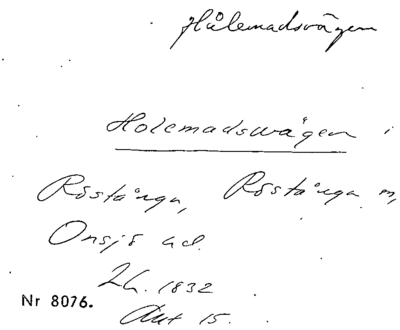 Hålemadsvägen
Holemadswågen i
Röstånga, Röstånga sn,
Onsjö hd.
Lh. 1832
Nr 8076.
Akt 15.